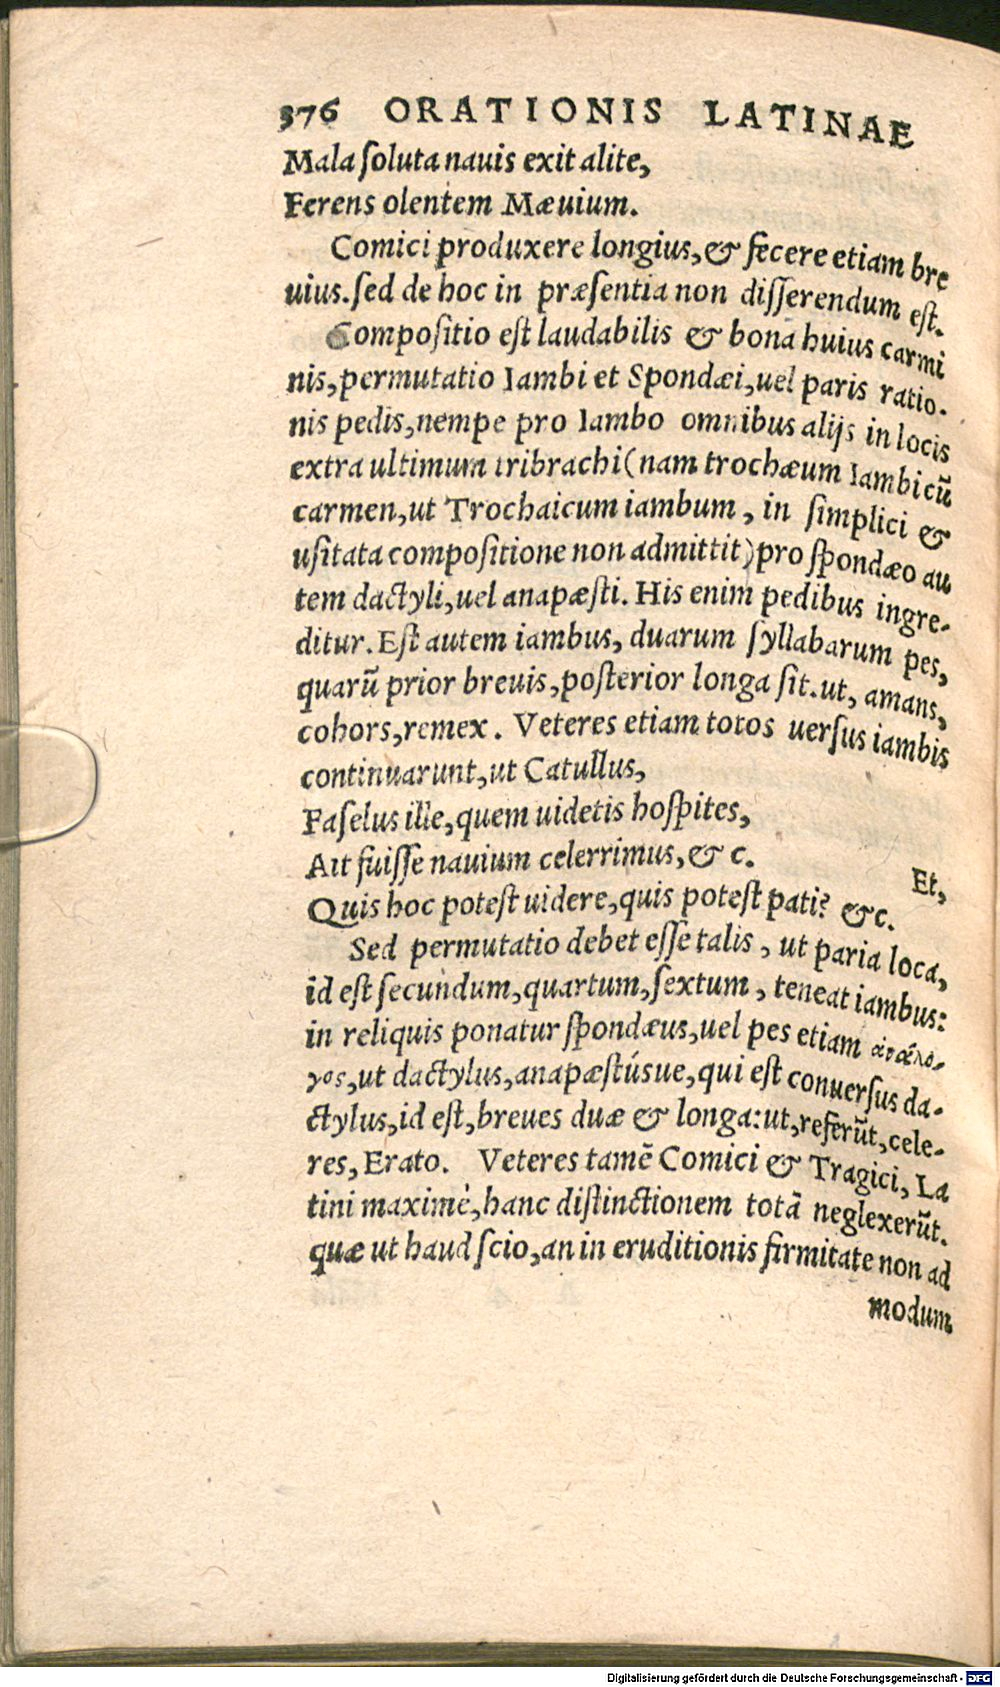 376 ORATIONIS LATINAE
Mala ſoluta nauis exit alite,
Ferens olentem Mæuium.
Comici produxere longius, & fecere etiam bre
uius. ſed de hoc in præſentia non diſſerendum eſt.
Compoſitio eſt laudabilis & bona huius carmi
nis, permutatio Iambi et Spondæi, uel paris ratio-
nis pedis, nempe pro Iambo omnibus alijs in locis
extra ultimum tribrachi (nam trochæum Iambicū
carmen, ut Trochaicum iambum, in ſimplici &
uſitata compoſitione non admittit) pro ſpondæo au
tem dactyli, uel anapæſti. His enim pedibus ingre-
ditur. Eſt autem iambus, duarum ſyllabarum pes,
quarū prior breuis, poſterior longa ſit. ut, amans,
cohors, remex. Veteres etiam totos uerſus iambis
continuarunt, ut Catullus,
Faſelus ille, quem uidetis hoſpites,
Ait fuiſſe nauium celerrimus, & c.
Et,
Quis hoc poteſt uidere, quis poteſt pati? &c.
Sed permutatio debet eſſe talis, ut paria loca,
id eſt ſecundum, quartum, ſextum, teneat iambus:
in reliquis ponatur ſpondæus, uel pes etiam ἀνάλο-
γος, ut dactylus, anapæſtúsue, qui eſt conuerſus da-
ctylus, id eſt, breues duæ & longa: ut, referūt, cele-
res, Erato. Veteres tamē Comici & Tragici, La
tini maximè, hanc diſtinctionem totā neglexerūt.
quæ ut haud ſcio, an in eruditionis firmitate non ad
modum
Digitalisierung gefördert durch die Deutsche Forschungsgemeinschaft - DFG